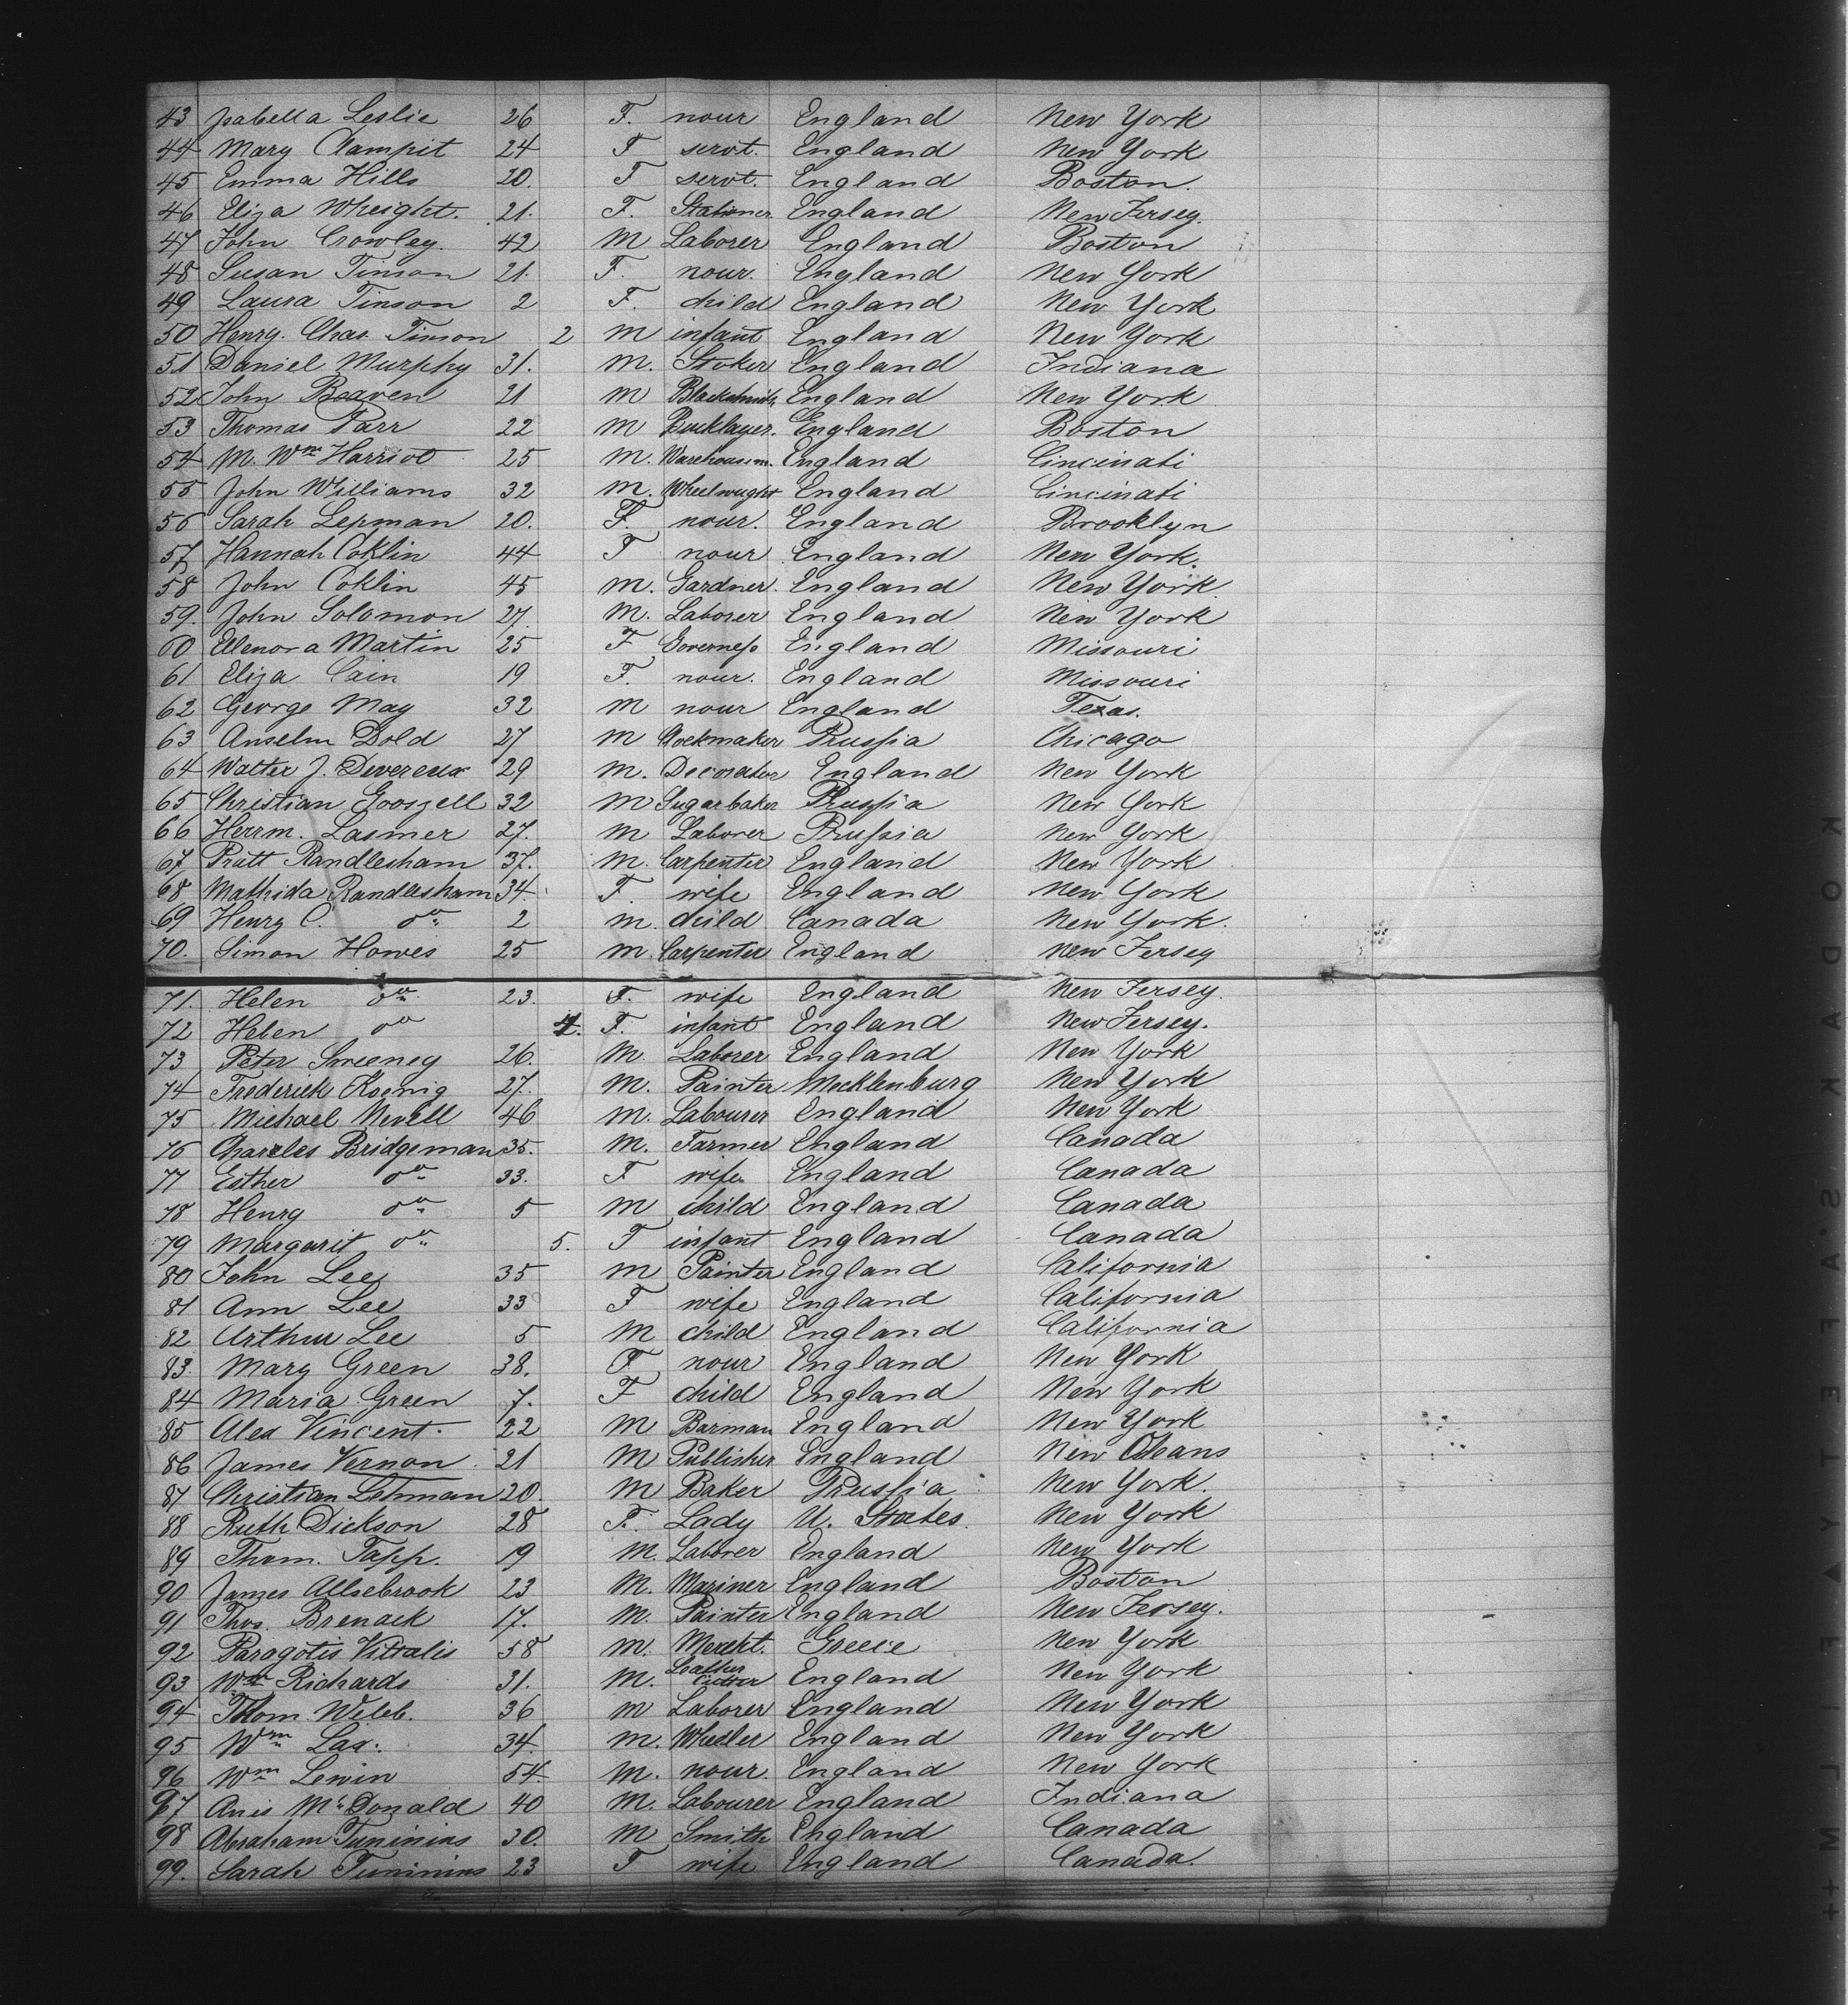 43 Isabella Leslie 26 F. nour England New York
44 Mary Clampit 24 F servt. England New York
45 Emma Hills 20. F servt. England Boston.
46 Eliza Wheight. 21. F. Stationer England New Jersey.
47 John Crowley. 42 M Laborer England Boston
48 Susan Tinson 21. F. nour. England New York
49 Laura Tinson 2 F. child England New York
50 Henry. Chas. Tinson 2 M infant England New York
51 Daniel Murphy 31. M. Stoker England Indiana
52 John Beaven 21 M Blacksmith England New York
53 Thomas Parr 22 M Bricklayer. England Boston
54 M. Wm Harriot 25 M. Warehousem. England Cincinati
55 John Williams 32 M. Wheelwright England Cincinati
56 Sarah Lepman 20. F. nour. England Brooklyn
57 Hannah Coklin 44 F nour England New York.
58 John Coklin 45 M. Gardner. England New York.
59. John Solomon 27. M. Laborer England New York
60 Ellenora Martin 25 F Governess England Missouri
61 Eliza Cain 19 F. nour. England Missouri
62 George May 32 M nour England Texas.
63 Anselm Dold 27 M Clockmaker Prussia Chicago
64 Walter J. Devereux 29 M. Decorator England New York
65 Christian Gooszell 32 M Sugarbaker Prussia New York
66 Herrm. Lasmer 27. M Laborer Prussia New York
67 Pratt Randlesham 37. M. Carpenter England New York
68 Mathida Randlesham 34. F. wife England New York
69 Henry C. do 2 M. child Canada New York.
70. Simon Howes 25 M. Carpenter England New Jersey
71. Helen do 23. F. wife England New Jersey.
72 Helen do 4. F. infant England New Jersey.
73 Peter Sweeney 26. M. Laborer England New York
74 Frederick Koenig 27. M. Painter Mecklenburg New York
75 Michael Nevell 46 M. Labourer England New York
76 Charles Bridgeman 35. M. Farmer England Canada
77 Esther do 33. F wife England Canada
78 Henry do 5 M child England Canada
79 Margarit do 5. F infant England Canada
80 John Lee 35 M Painter England California
81 Ann Lee 33 F wife England California
82 Arthur Lee 5 M child England California
83. Mary Green 38. F nour England New York
84 Maria Green 7. F child England New York
85 Alex Vincent. 22 M Barman England New York
86 James Vernon 21 M Publisher England New Orleans
87 Christian Lehman 20. M Baker Prussia New York.
88 Ruth Dickson 28 F. Lady U. States New York
89 Thom. Tapp. 19 M. Laborer England New York
90 James Allsebrook 23 M. Mariner England Boston
91 Thos. Brenack 17. M. Painter England New Jersey.
92 Paragotis Vittalis 58 M. Mercht. Greece New York
93 Wm Richards 31. M. Leather Cutter England New York
94 Thom. Webb. 36 M Laborer England New York
95 Wm Lax. 34. M. Wheeler England New York
96 Wm Lewin 54. M. nour. England New York
97 Anis McDonald 40 M. Labourer England Indiana
98 Abraham Tuninins 30. M Smith England Canada
99. Sarah Tuninins 23 F wife England Canada.
KODAK SAFETY FILM